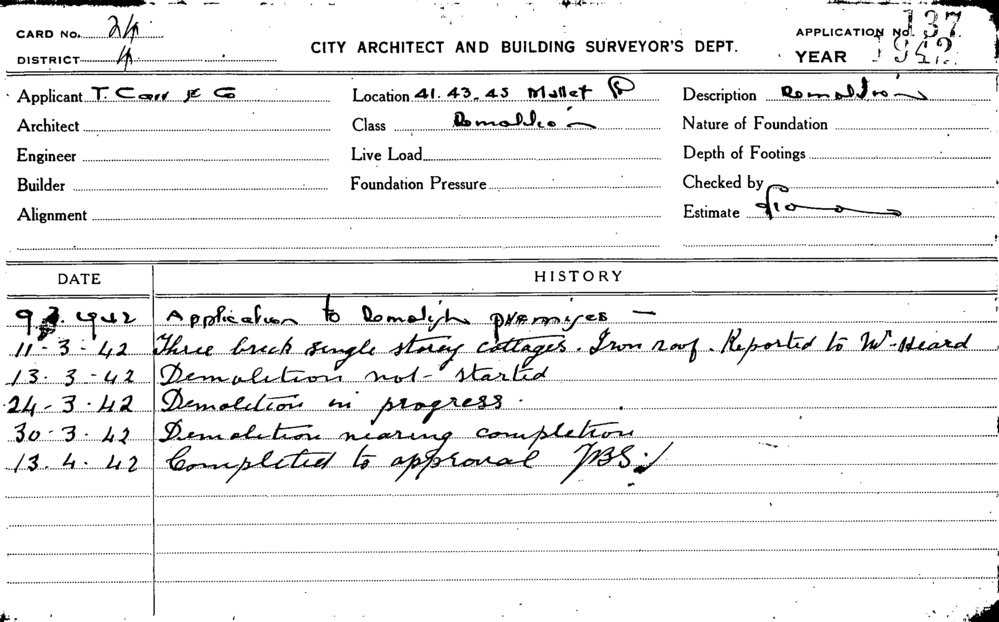 CARD No. 24
DISTRICT 4
CITY ARCHITECT AND BUILDING SURVEYOR'S DEPT.
APPLICATION No. 137
YEAR 1942
Applicant T. Carr & Co Location 41. 43. 45 Mullet Description Demolition
Architect Class Demolition Nature of Foundation
Engineer Live Load Depth of Footings
Builder Foundation Pressure Checked by
Alignment Estimate
DATE HISTORY
9. 3. 1942 Application to Demolish premises —
11-3-42 Three brick single storey cottages. Iron roof. Reported to Mr Heard
13.3-42 Demolition not started
24-3.42 Demolition in progress.
30-3.42 Demolition nearing completion
13.4.42 Completed to approval JBS